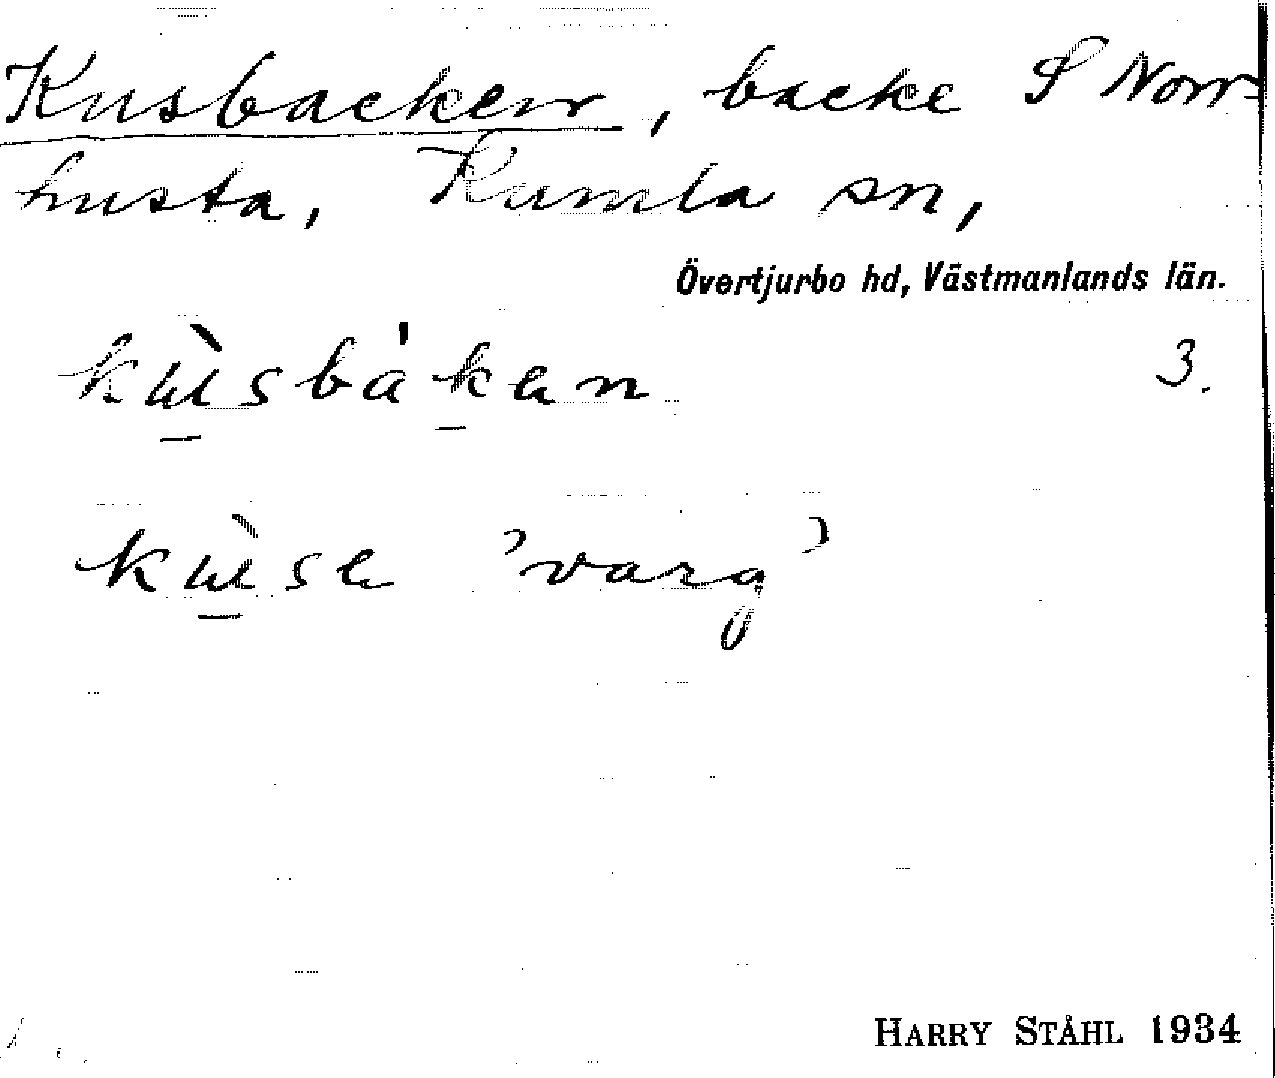 Kusbacken, backe S Norr-
husta, Kumla sn,
Övertjurbo hd, Västmanlands län.
kùsbákan 3.
kùsa 'varg'
HARRY STÅHL 1934